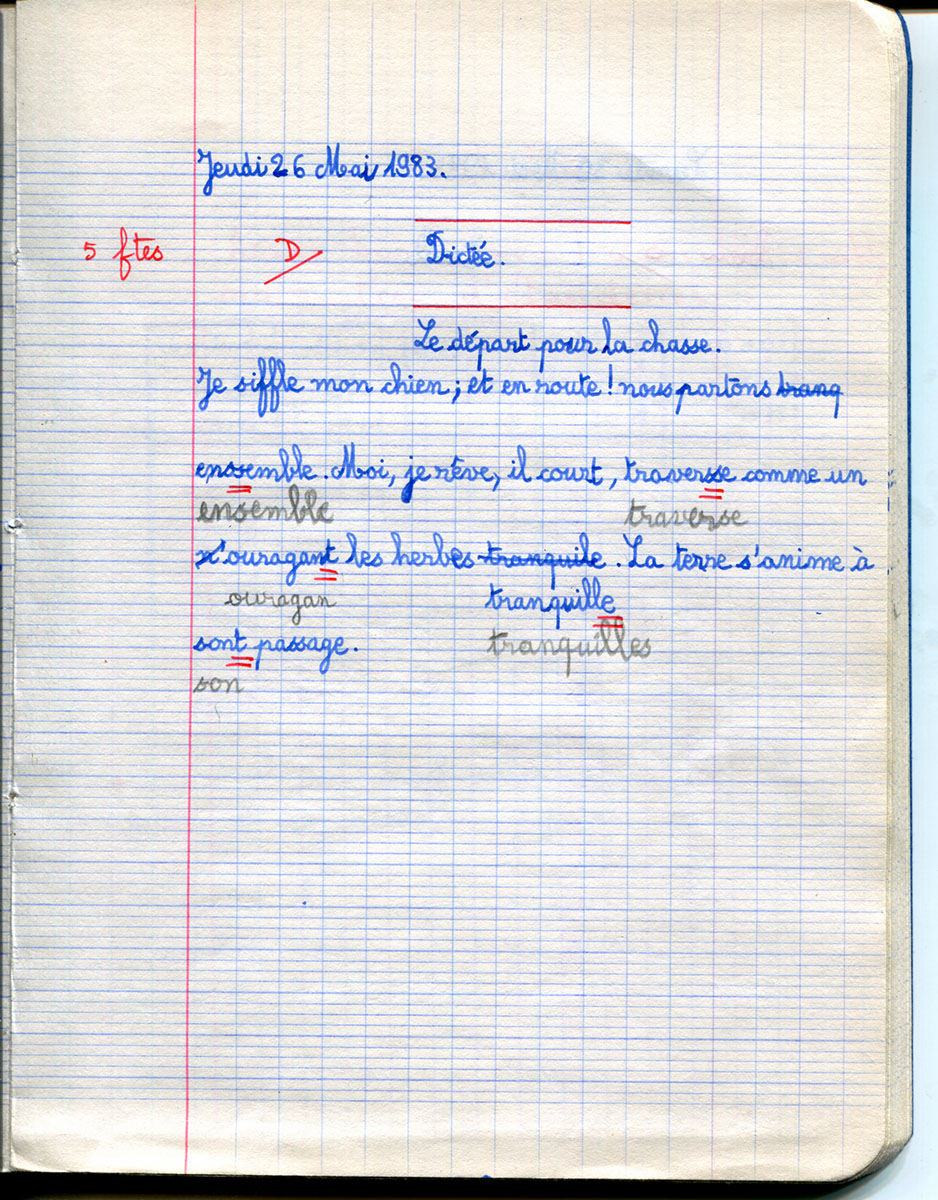 Jeudi 26 Mai 1983.
5 ftes D Dictée.
Le départ pour la chasse.
Je siffle mon chien ; et en route ! nous partons tranq
enssemble. Moi, je rêve, il court, traversse comme un
ensemble traverse
n'ouragant les herbes tranquile. La terre s'anime à
ouragan tranquille
sont passage. tranquilles
son